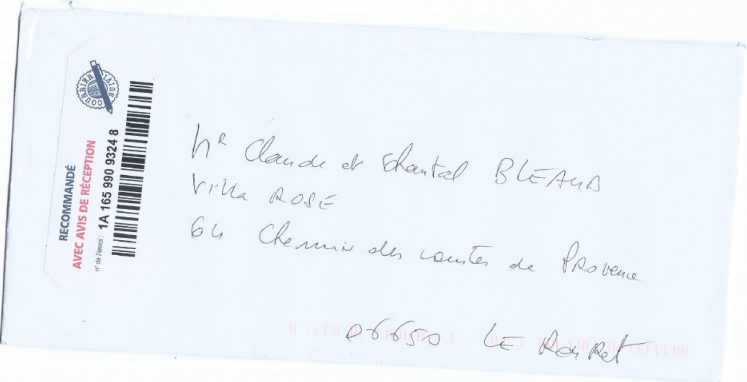 RECOMMANDÉ
AVEC AVIS DE RÉCEPTION
n° de l'envoi : 1A 165 990 9324 8
Mr Claude et Chantal
Villa ROSE
64 Chemin des comtes de Provence
06650 LE ROURET